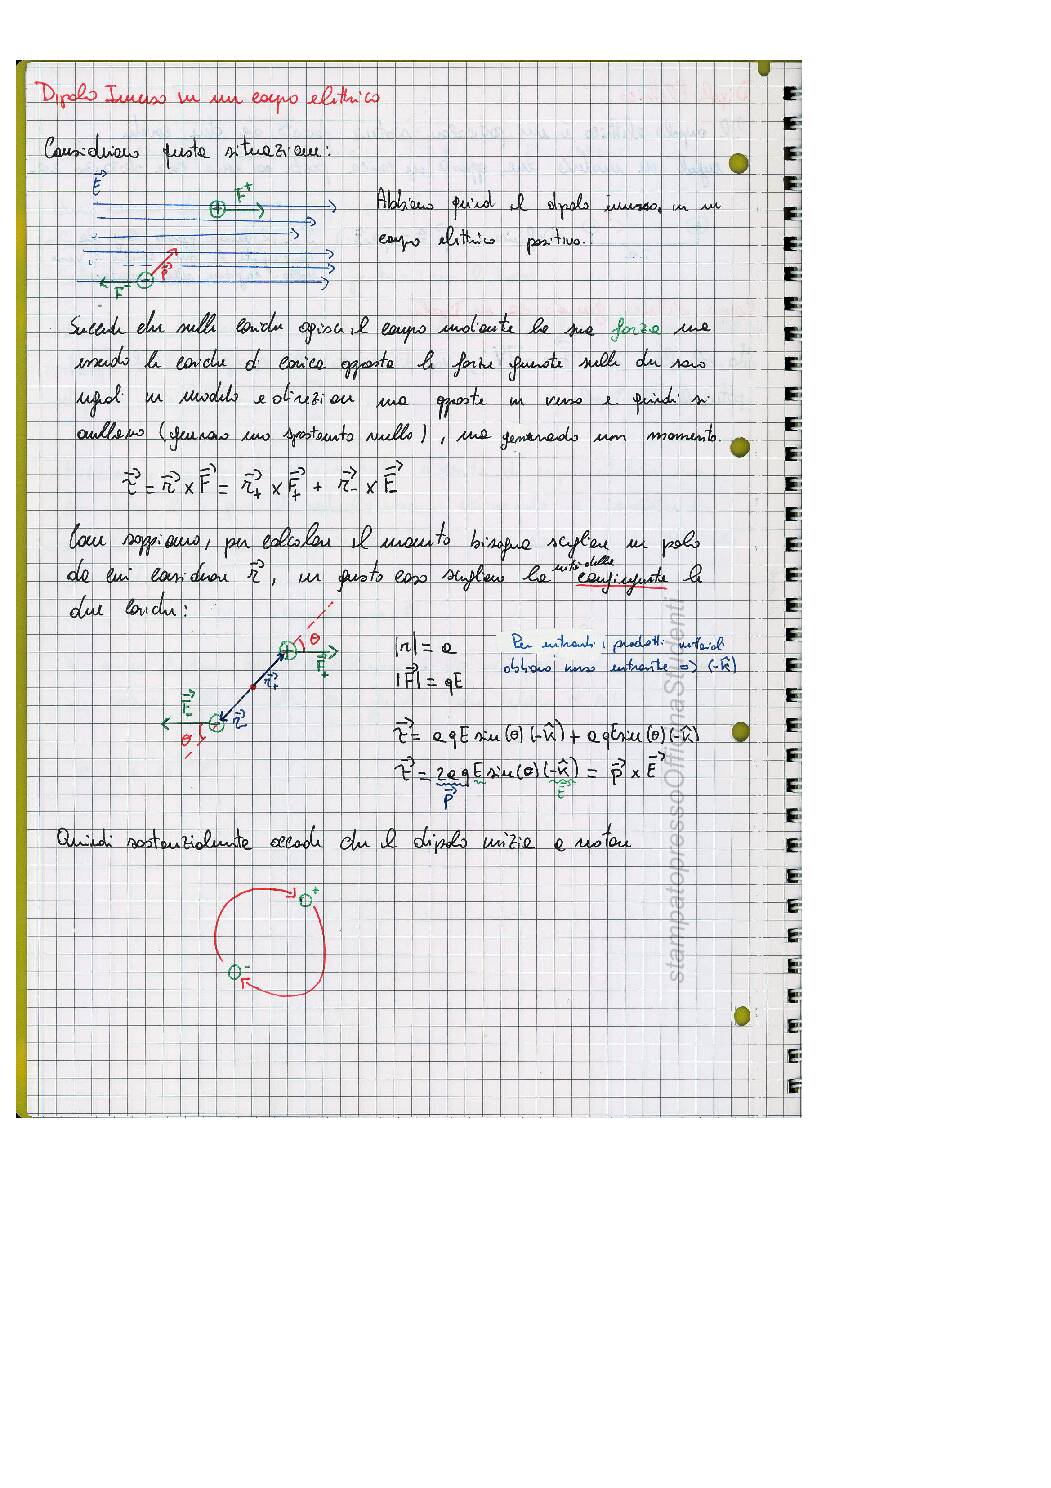 Dipolo Immerso in un campo elettrico
Consideriamo questa situazione:
E
F+
Abbiamo quindi il dipolo immerso in un
campo elettrico positivo.
p
F-
Succede che sulle cariche agisce il campo mediante la sua forza ma
essendo le cariche di carica opposta le forze generate sulle due sono
uguali in modulo e direzione ma opposte in verso e quindi si
annullano (generano uno spostamento nullo), ma generando un momento.
τ = r x F = r+ x F+ + r- x E
Come sappiamo, per calcolare il momento bisogna scegliere un polo
da cui considerare r, in questo caso scegliamo la metà della congiungente le
due cariche:
θ
F+
r+
r-
F-
θ
|r| = a
|F| = qE
Per entrambi i prodotti vettoriali
abbiamo verso entrante => (-k̂)
τ = a qE sin(θ) (-k̂) + a qE sin(θ) (-k̂)
τ = 2aqE sin(θ) (-k̂) = p x E
p
E
Quindi sostanzialmente accade che il dipolo inizia a ruotare
+
-
stampatopressoOfficinaStudenti